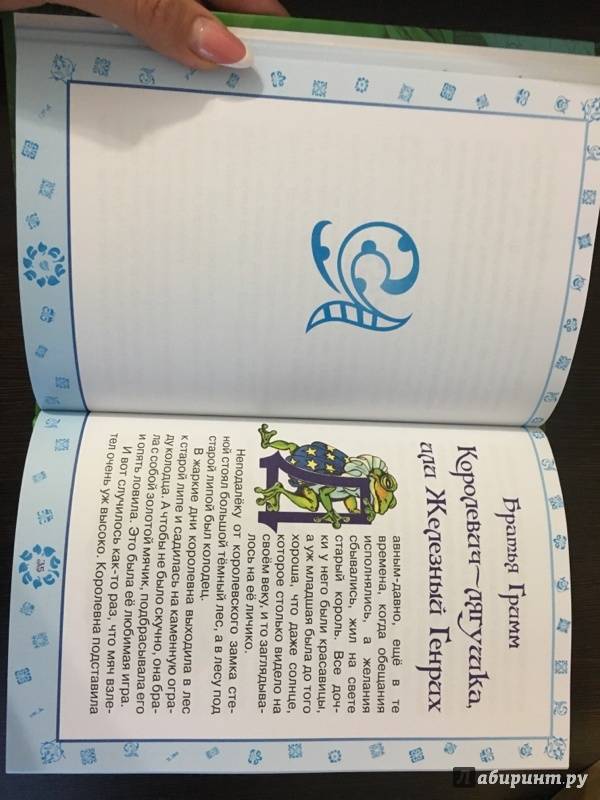 Братья Гримм
Королевич-лягушка,
или Железный Генрих
Давным-давно, ещё в те
времена, когда обещания
исполнялись, а желания
сбывались, жил на свете
старый король. Все доч-
ки у него были красавицы,
а уж младшая была до того
хороша, что даже солнце,
которое столько видело на
своём веку, и то загляделыва-
лось на её личико.
Неподалёку от королевского замка сте-
ной стоял большой тёмный лес, а в лесу под
старой липой был колодец.
В жаркие дни королевна выходила в лес
к старой липе и садилась на каменную огра-
ду колодца. А чтобы не было скучно, она бра-
ла с собой золотой мячик, подбрасывала его
и опять ловила. Это была её любимая игра.
И вот случилось как-то раз, что мяч взле-
тел очень уж высоко. Королевна подставила
35
Лабиринт.ру